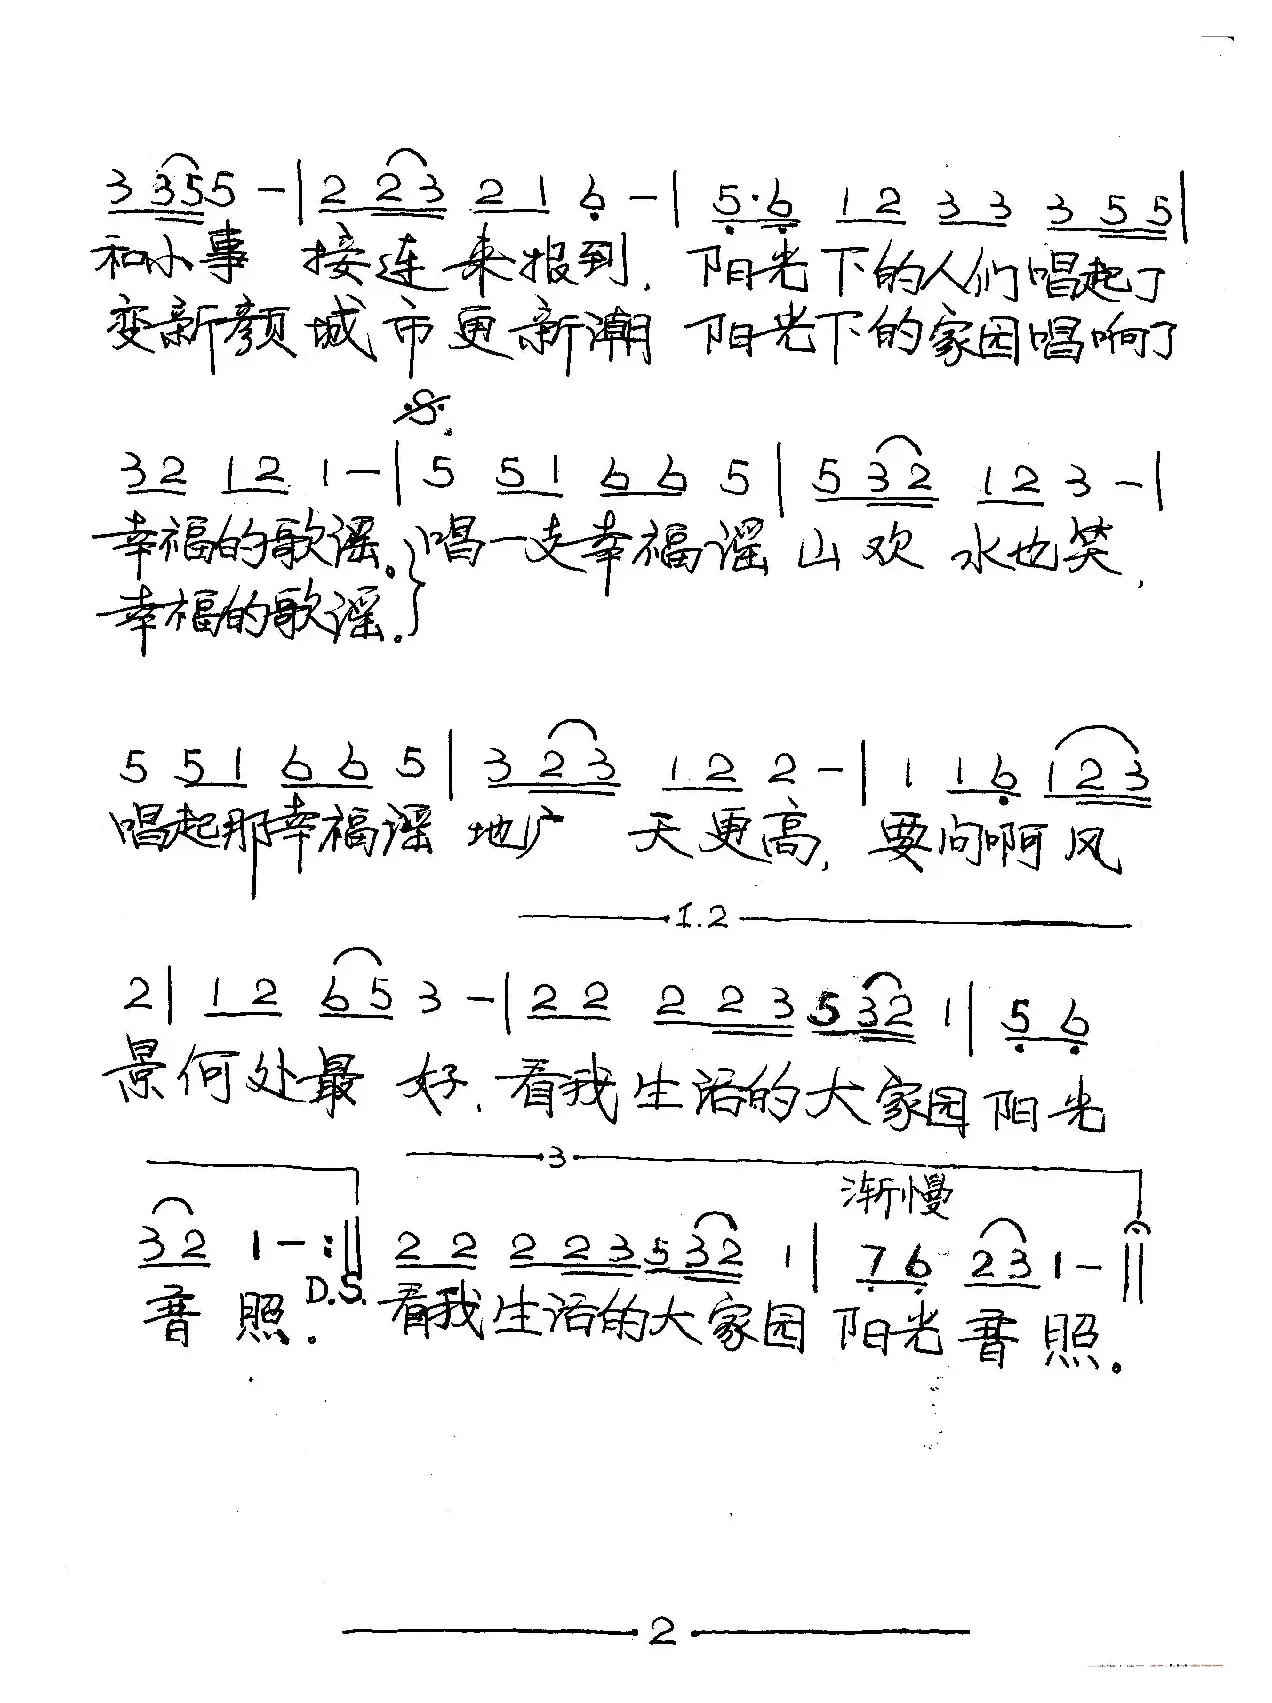 3 3 5 5 - | 2 2 3 2 1 6 - | 5·6 1 2 3 3 3 5 5 |
和小事 接连来报到. 阳光下的人们唱起了
变新颜城市更新潮 阳光下的家园唱响了
3 2 1 2 1 - | 5 5 1 6 6 5 | 5 3 2 1 2 3 - |
幸福的歌谣. 唱一支幸福谣 山欢 水也笑,
幸福的歌谣.
5 5 1 6 6 5 | 3 2 3 1 2 2 - | 1 1 6 1 2 3
唱起那幸福谣 地广 天更高, 要问啊风
1.2
2 | 1 2 6 5 3 - | 2 2 2 2 3 5 3 2 1 | 5 6
景何处最 好, 看我生活的大家园阳光
3
渐慢
3 2 1 - :‖ 2 2 2 2 3 5 3 2 1 | 7 6 2 3 1 - ‖
普 照. D.S. 看我生活的大家园 阳光普照.
2